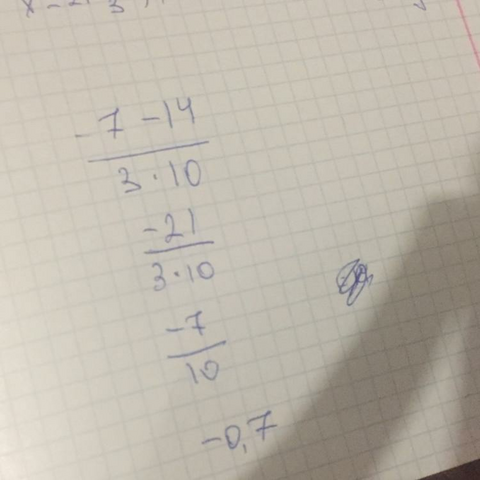 -7 -14
3·10
-21
3·10
-7
10
-0,7